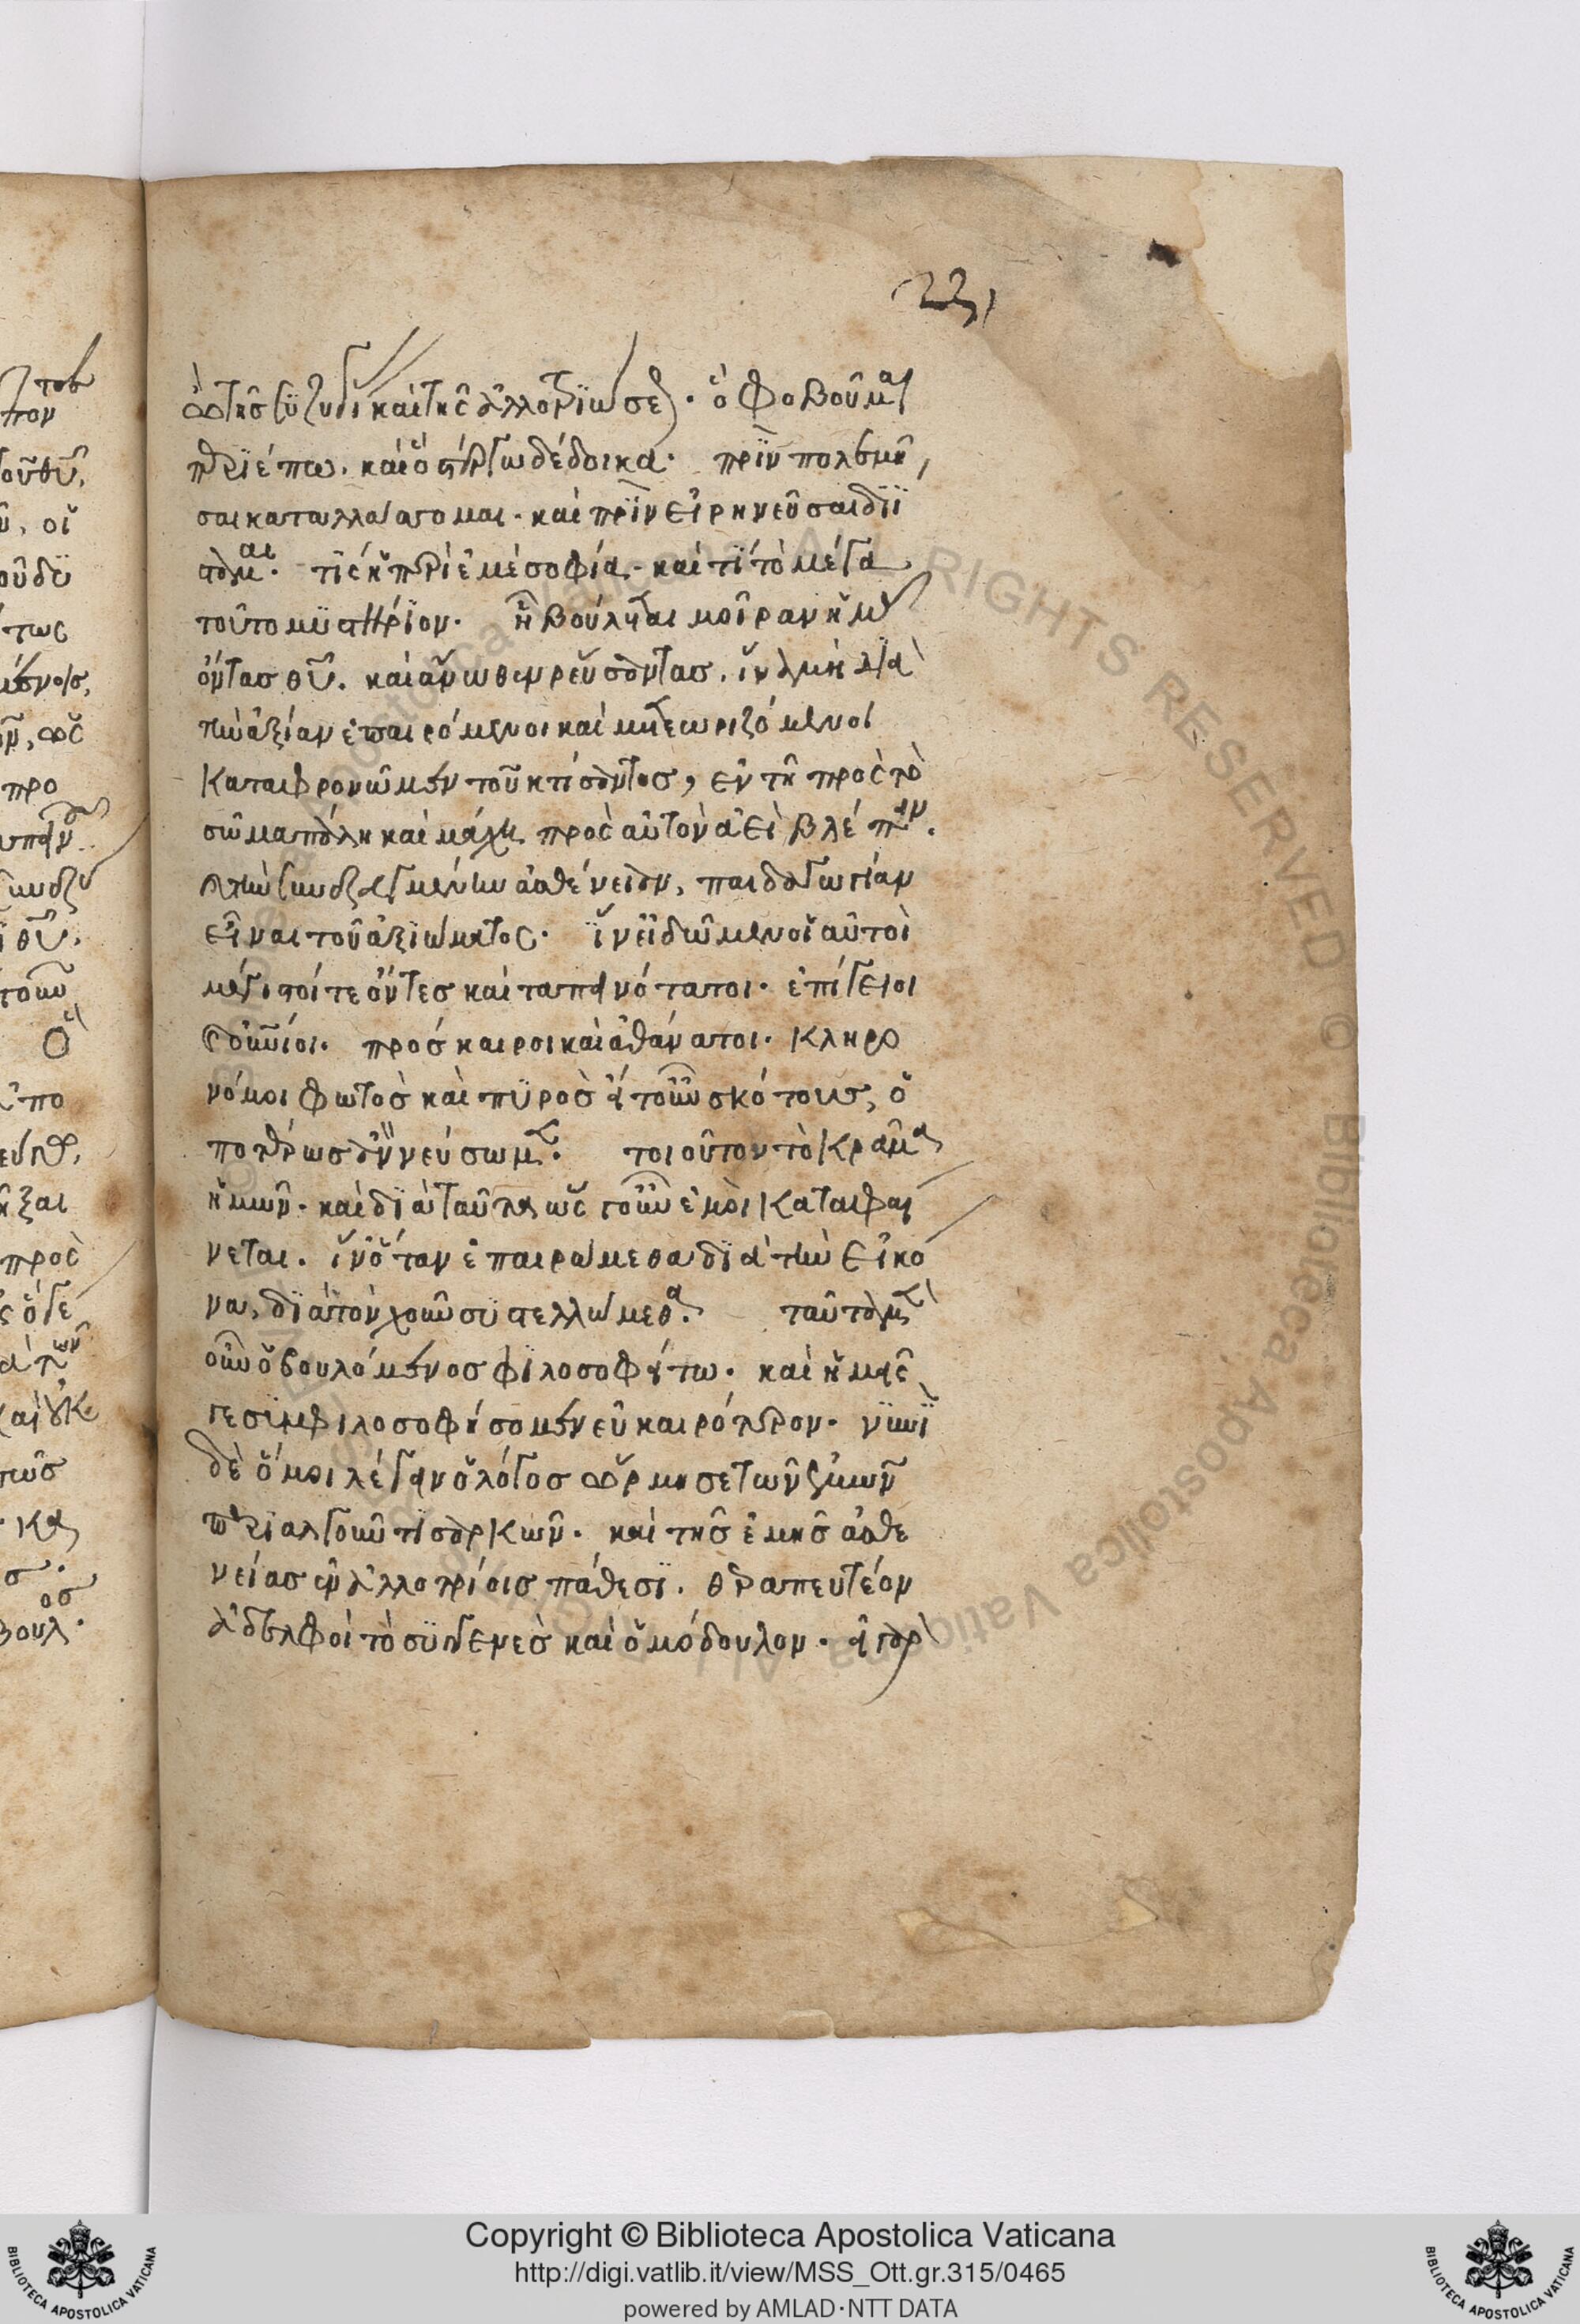 221
ὢ τῆς συζυγίας καὶ τῆς ἀλλοτριώσεως. ὃ φοβοῦμαι
περιέπω. καὶ ὃ στέργω δέδοικα. πρὶν πολεμῆ
σαι καταλλάσσομαι. καὶ πρὶν εἰρηνεῦσαι διΐ
σταμαι. τίς ἡ περὶ ἐμὲ σοφία. καὶ τί τὸ μέγα
τοῦτο μυστήριον. ἢ βούλεται μοῖραν ἡμᾶς
ὄντας θῦ. καὶ ἄνωθεν ρεύσαντας. ἵνα μὴ διὰ
τὴν ἀξίαν ἐπαιρόμενοι καὶ μετεωριζόμενοι
καταφρονῶμεν τοῦ κτίσαντος, ἐν τῇ πρὸς τὸ
σῶμα πάλῃ καὶ μάχῃ πρὸς αὐτὸν ἀεὶ βλέπειν.
καὶ τὴν συνεζευγμένην ἀσθένειαν, παιδαγωγίαν
εἶναι τοῦ ἀξιώματος. ἵν' εἰδῶμεν οἱ αὐτοὶ
μέγιστοί τε ὄντες καὶ ταπεινότατοι. ἐπίγειοι
καὶ οὐνίοι. πρόσκαιροι καὶ ἀθάνατοι. κληρο
νόμοι φωτὸς καὶ πυρὸς εἴτουν σκότους, ὁ
ποτέρως ἂν νεύσωμεν. τοιοῦτον τὸ κρᾶμα
ἡμῶν. καὶ διὰ ταῦτα ὡς γοῦν ἐμοὶ καταφαί
νεται. ἵν' ὅταν ἐπαιρώμεθα διὰ τὴν εἰκό
να, διὰ τὸν χοῦν συστελλώμεθα. ταῦτα μὲν
οὖν ὁ βουλόμενος φιλοσοφείτω. καὶ ἡμεῖς
γε συμφιλοσοφήσομεν εὐκαιρότερον. νυνὶ
δὲ ὅ μοι λέγειν ὁ λόγος ὥρμησε τῶν ἐμῶν
περιαλγοῦντι σαρκῶν. καὶ τῆς ἐμῆς ἀσθε
νείας ἐν ἀλλοτρίοις πάθεσι. θεραπευτέον
ἀδελφοὶ τὸ συγγενὲς καὶ ὁμόδουλον. εἰ γὰρ
Copyright © Biblioteca Apostolica Vaticana
http://digi.vatlib.it/view/MSS_Ott.gr.315/0465
powered by AMLAD·NTT DATA